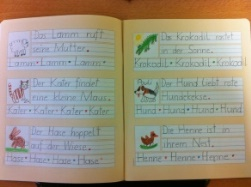 Das Lamm ruft
seine Mutter.
Lamm • Lamm • Lamm
Der Kater findet
eine kleine Maus.
Kater • Kater • Kater • Kater
Der Hase hoppelt
auf der Wiese.
Hase • Hase • Hase • Hase
Das Krokodil steht
in der Sonne.
Krokodil • Krokodil • Krokodil
Der Hund liebt rote
Hund • Hund • Hund • Hund
Die Henne ist in
ihrem Nest.
Henne • Henne • Henne •